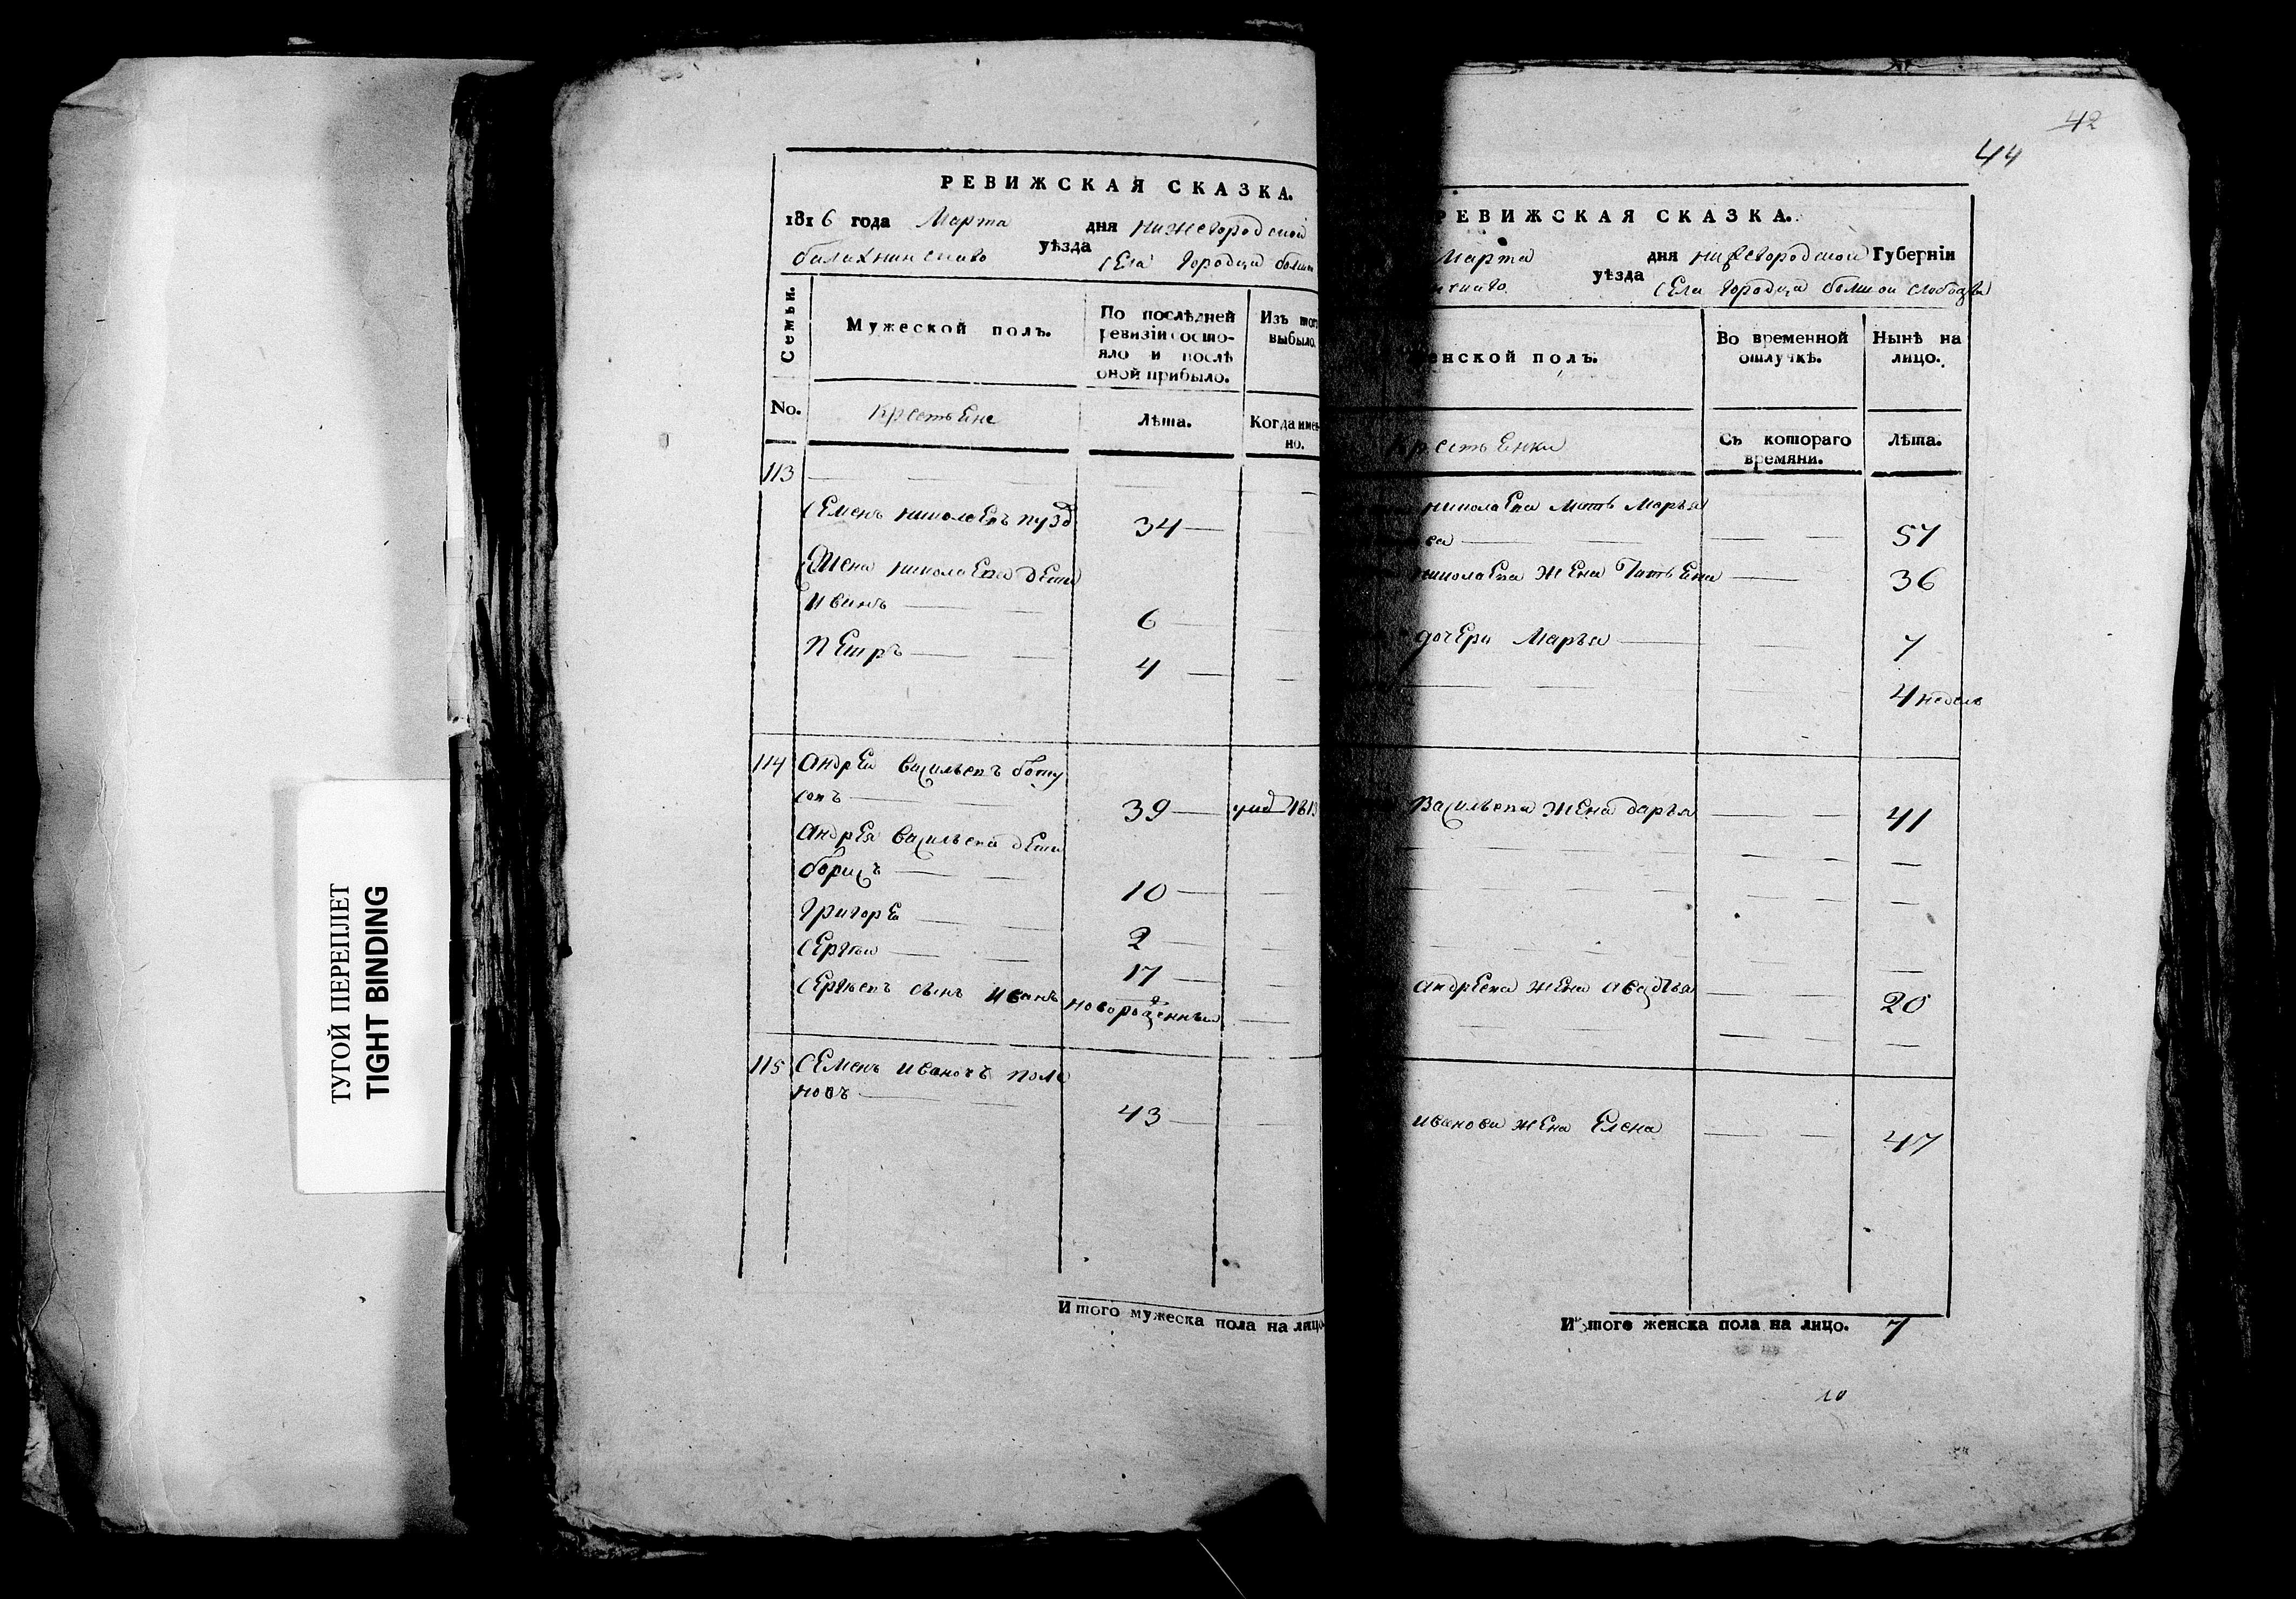 ТУГОЙ ПЕРЕПЛЕТ
TIGHT BINDING
РЕВИЖСКАЯ СКАЗКА.
1816 года Марта дня нижегородской
балахнинскаго уѣзда села городца болшои
Семьи.
Мужеской полъ.
По послѣдней
ревизіи состо-
яло и послѣ
оной прибыло.
Изъ того
выбыло.
No.
крестьене
Лѣта.
Когда имен-
но.
113
Семенъ николаевъ
34
Семена николаева дети
иванъ
6
петръ
4
114 андреи васильевъ боту
совъ
39 умер 1813
андрея васильева дети
борисъ
10
григореи
2
сергеи
17
сергеевъ сынъ иванъ новорожденныи
115 Семенъ ивановъ поле
новъ
43
Итого мужеска пола на лицо
42
44
РЕВИЖСКАЯ СКАЗКА.
Марта дня нижегородской Губерніи
уѣзда села городца болшои слободы
женской полъ.
Во временной
отлучкѣ.
Нынѣ на
лицо.
крестьенки
Съ котораго
времяни.
Лѣта.
николаева мать Марья
57
николаева жена Татьена 36
дочери Марья 7
4 недель
Васильева жена дарья 41
андреева жена авдотья 20
иванова жена Елена 47
Итого женска пола на лицо. 7
10